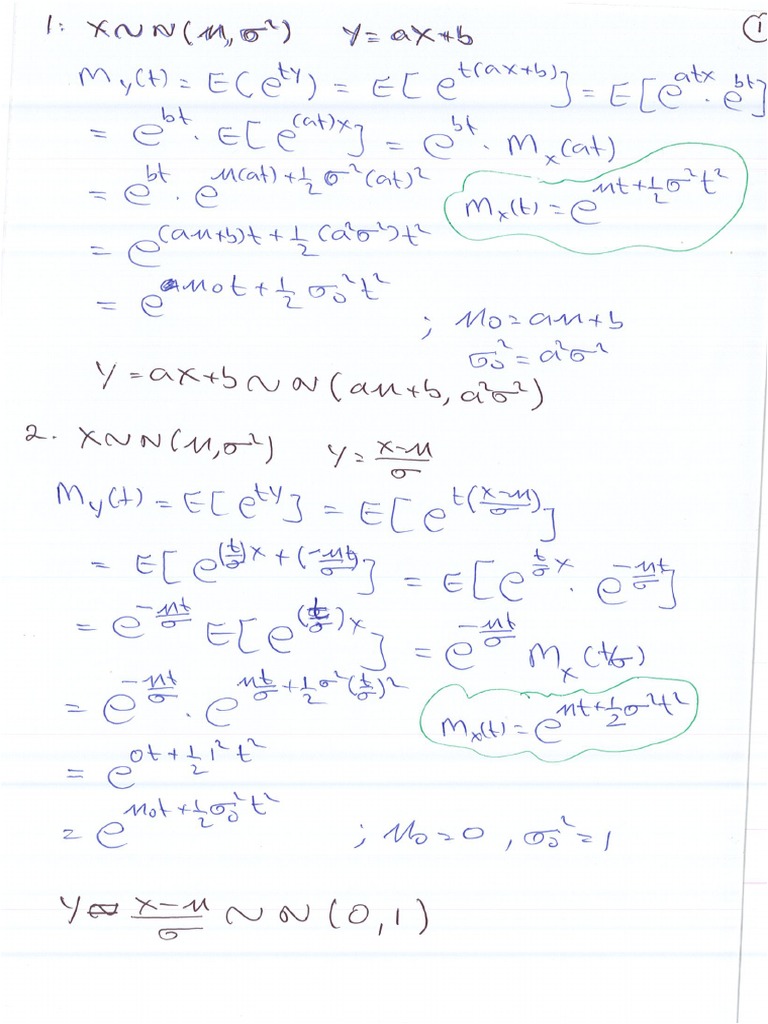 1: X~N(μ,σ²) Y=aX+b ①
M_Y(t) = E(e^{tY}) = E[e^{t(aX+b)}] = E[e^{atX}·e^{bt}]
= e^{bt}·E[e^{(at)X}] = e^{bt}·M_X(at)
= e^{bt}·e^{μ(at)+½σ²(at)²}
M_X(t) = e^{μt+½σ²t²}
= e^{(aμ+b)t+½(a²σ²)t²}
= e^{μ₀t+½σ₀²t²}
; μ₀=aμ+b
σ₀²=a²σ²
Y=aX+b ~ N(aμ+b, a²σ²)
2. X~N(μ,σ²) Y=\frac{X-μ}{σ}
M_Y(t) = E[e^{tY}] = E[e^{t(\frac{X-μ}{σ})}]
= E[e^{(\frac{t}{σ})X+(-\frac{μt}{σ})}] = E[e^{\frac{t}{σ}X}·e^{-\frac{μt}{σ}}]
= e^{-\frac{μt}{σ}} E[e^{(\frac{t}{σ})X}] = e^{-\frac{μt}{σ}} M_X(t/σ)
= e^{-\frac{μt}{σ}}·e^{\frac{μt}{σ}+½σ²(\frac{t}{σ})²}
M_X(t) = e^{μt+½σ²t²}
= e^{0t+½1²t²}
= e^{μ₀t+½σ₀²t²} ; μ₀=0, σ₀²=1
Y=\frac{X-μ}{σ} ~ N(0,1)